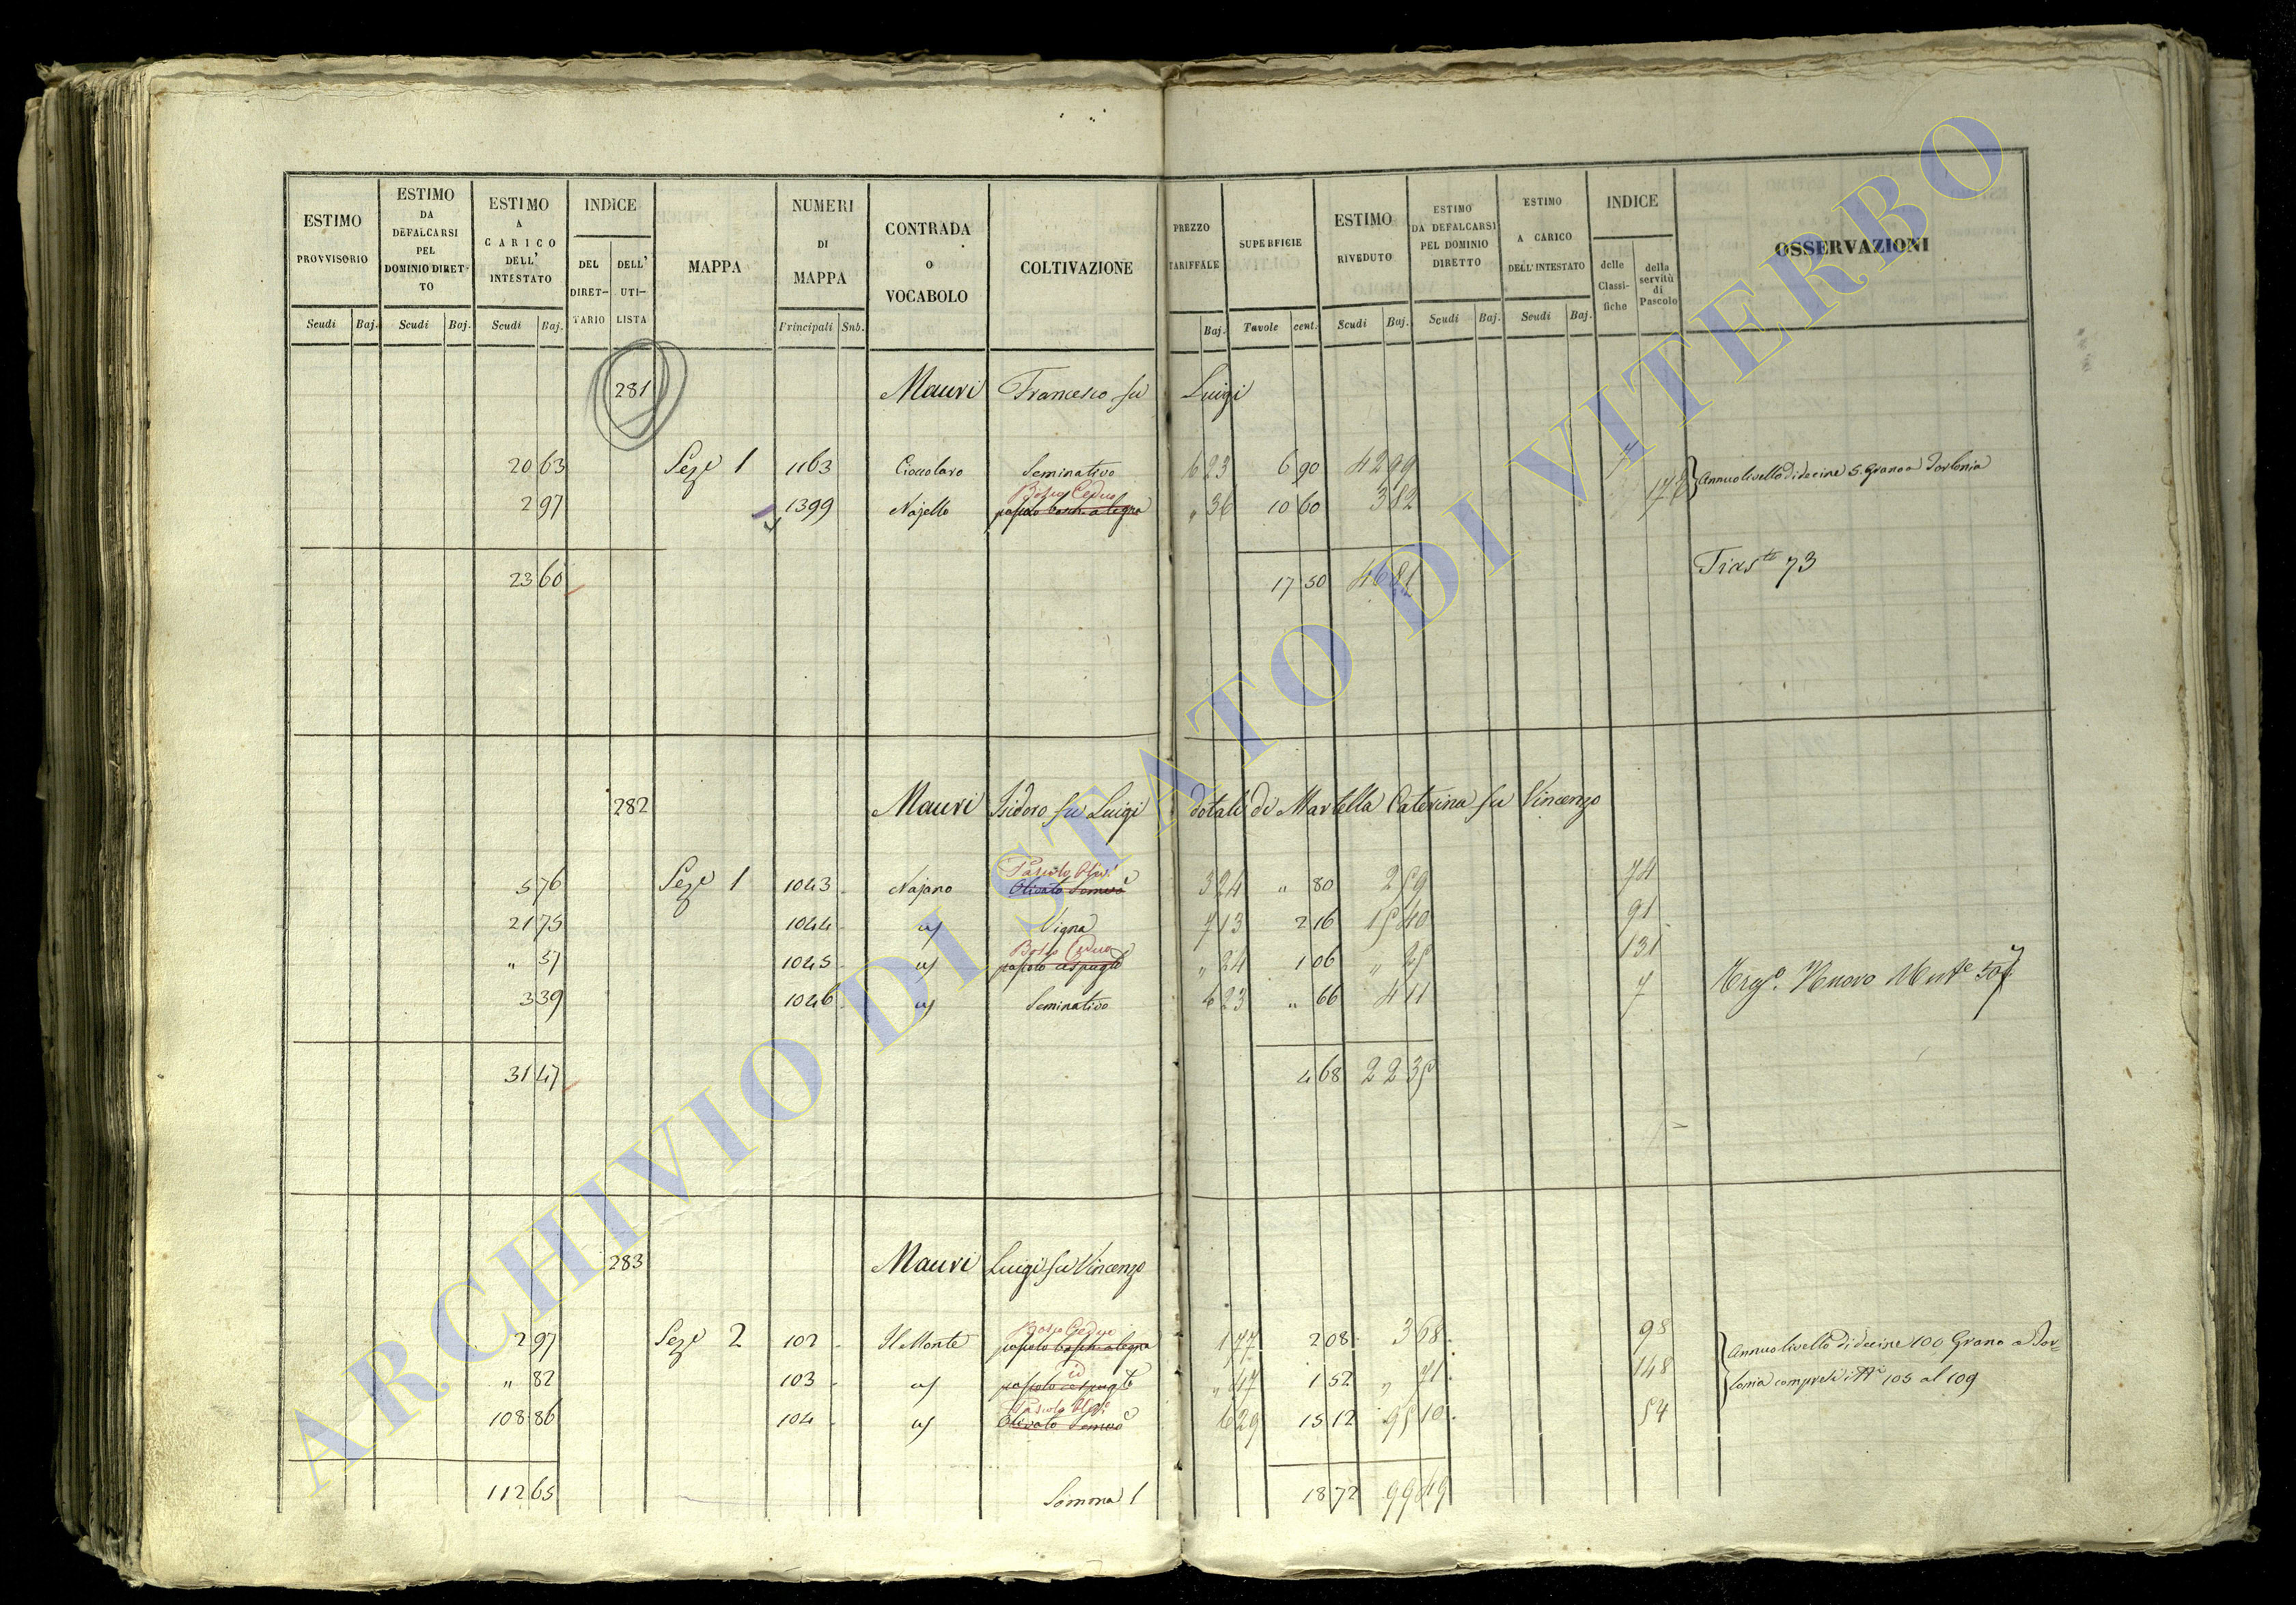 ESTIMO PROVVISORIO | ESTIMO DA DEFALCARSI PEL DOMINIO DIRETTO | ESTIMO A CARICO DELL' INTESTATO | INDICE | MAPPA | NUMERI DI MAPPA | CONTRADA O VOCABOLO | COLTIVAZIONE | PREZZO TARIFFALE | SUPERFICIE | ESTIMO RIVEDUTO | ESTIMO DA DEFALCARSI PEL DOMINIO DIRETTO | ESTIMO A CARICO DELL'INTESTATO | INDICE | OSSERVAZIONI
DEL DIRETTARIO | DELL' UTILISTA | delle Classifiche | della servitù di Pascolo
Scudi | Baj. | Scudi | Baj. | Scudi | Baj. | Principali | Sub. | Baj. | Tavole | cent. | Scudi | Baj. | Scudi | Baj. | Scudi | Baj.
281 Mauri Francesco fu Luigi
20 63 Seze 1 1163 Cioccolaro Seminativo 6 23 6 90 42 99 7
Bosco Ceduo
2 97 1399 Najello pascolo bosch. a legna " 36 10 60 3 82 178
Annuo livello di decine 5. Grano a Torlonia
23 60 17 50 46 81
Trasto 73
282 Mauri Isidoro fu Luigi dotali di Martella Caterina fu Vincenzo
Pascolo Oliv.
5 76 Seze 1 1043 Najano Olivato Semvo 3 24 " 80 2 59 74
21 75 1044 " Vigna 7 13 2 16 15 40 91
Bosco Ceduo
" 57 1045 " pascolo cespugto " 24 1 06 " 25 131
3 39 1046 " Seminativo 6 23 " 66 4 11 7
31 47 4 68 22 35
283 Mauri Luigi fu Vincenzo
Bosco Ceduo
2 97 Seze 2 102 Il Monte pascolo bosch. a legna 1 77 2 08 3 68 98
id
" 82 103 " pascolo cespugto " 47 1 52 " 71 148
Pascolo Oliv.
108 86 104 " Olivato Semvo 6 29 15 12 95 10 54
Annuo livello di decine 100 Grano a Tor=
lonia compresi i Ni 105 al 109
112 65 Somma 1 18 72 99 49
ARCHIVIO DI STATO DI VITERBO